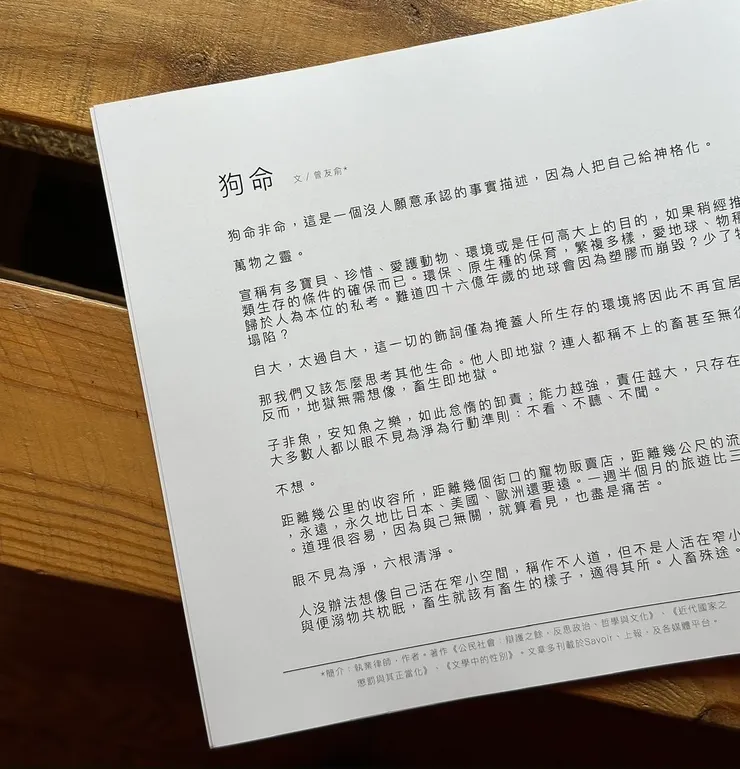 狗命
文 / 曾友俞*
狗命非命，這是一個沒人願意承認的事實描述，因為人把自己給神格化。
萬物之靈。
宣稱有多寶貝、珍惜、愛護動物、環境或是任何高大上的目的，如果稍經推
類生存的條件的確保而已。環保、原生種的保育，繁複多樣，愛地球、物種
歸於人為本位的私考。難道四十六億年歲的地球會因為塑膠而崩毀？少了
塌陷？
自大，太過自大，這一切的飾詞僅為掩蓋人所生存的環境將因此不再宜居
那我們又該怎麼思考其他生命。他人即地獄？連人都稱不上的畜甚至無從
反而，地獄無需想像，畜生即地獄。
子非魚，安知魚之樂，如此怠惰的卸責；能力越強，責任越大，只存在
大多數人都以眼不見為淨為行動準則：不看、不聽、不聞。
不想。
距離幾公里的收容所，距離幾個街口的寵物販賣店，距離幾公尺的流
，永遠，永久地比日本、美國、歐洲還要遠。一週半個月的旅遊比三
。道理很容易，因為與己無關，就算看見，也盡是痛苦。
眼不見為淨，六根清淨。
人沒辦法想像自己活在窄小空間，稱作不人道，但不是人活在窄小
與便溺物共枕眠，畜生就該有畜生的樣子，適得其所。人畜殊途。
*簡介：執業律師，作者。著作《公民社會：辯護之餘，反思政治、哲學與文化》、《近代國家之
懲罰與其正當化》、《文學中的性別》。文章多刊載於Savoir、上報，及各媒體平台。